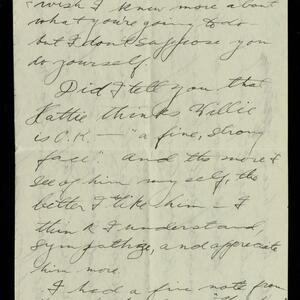 wish I knew more about
what you're going to do
but I don't suppose you
do yourself.
Did I tell you that
Hattie thinks Willie
is O.K. — "a fine, strong
face". and the more I
see of him myself, the
better I like him — I
think I understand,
sympathize, and appreciate
him more.
I had a fine note from